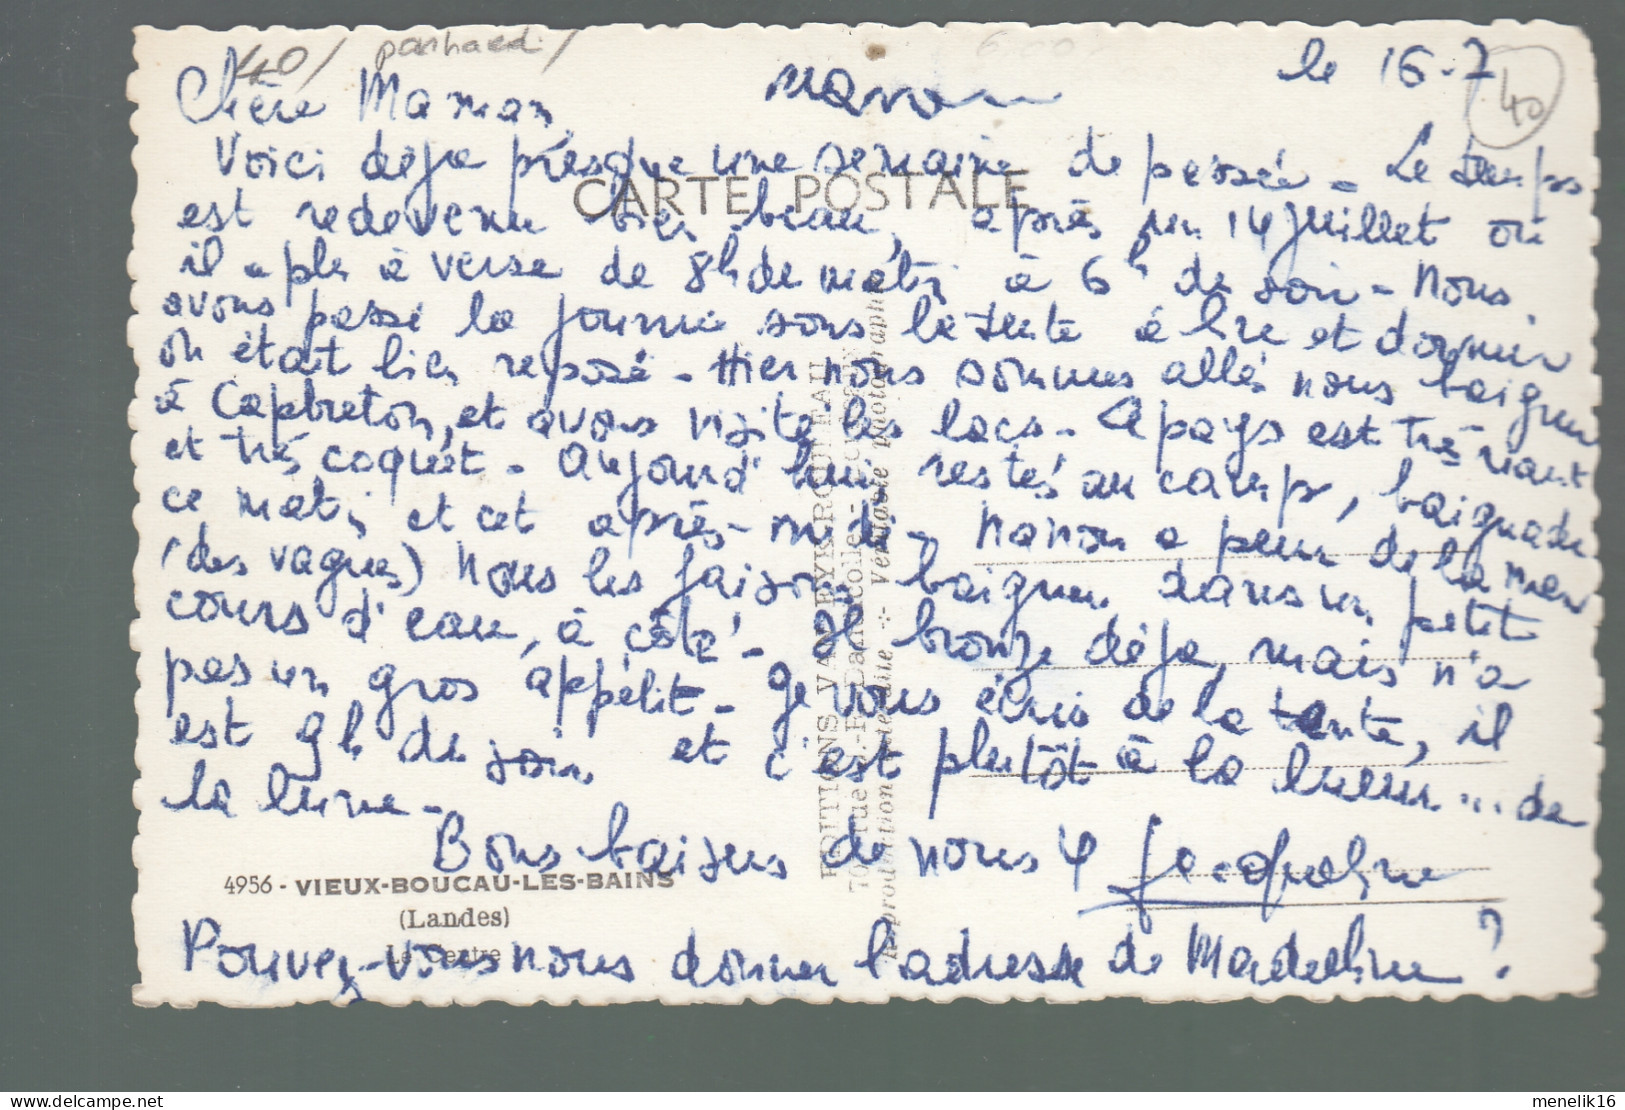 40/ panhard/
40
le 16-7
Manon
Chère Maman,
Voici déjà presque une semaine de passée - Le temps
est redevenu bien beau, après un 14 Juillet où
il a plu à verse de 8h de matin à 6h de soir - Nous
avons passé la journée sous la tente à lire et dormir
on était bien reposé - Hier nous sommes allés nous baigner
à Capbreton, et avons visité les lacs - Le pays est très riant
et très coquet - Aujourd'hui restés au camp, baignade
ce matin et cet après-midi - Manon a peur de la mer
(des vagues) Nous les faisons baigner dans un petit
cours d'eau, à côté - Il bronze déjà, mais n'a
pas un gros appétit - Je vous écris de la tente, il
est 9h de soir et c'est plutôt à la lueur ... de
la lune -
Bons baisers de nous 4 Jacqueline
Pouvez-vous nous donner l'adresse de Madeleine ?
CARTE POSTALE
4956 - VIEUX-BOUCAU-LES-BAINS
(Landes)
Le Centre
EDITIONS VAN EYK-ROUTAU
Reproduction interdite - Véritable photographie
menelik16